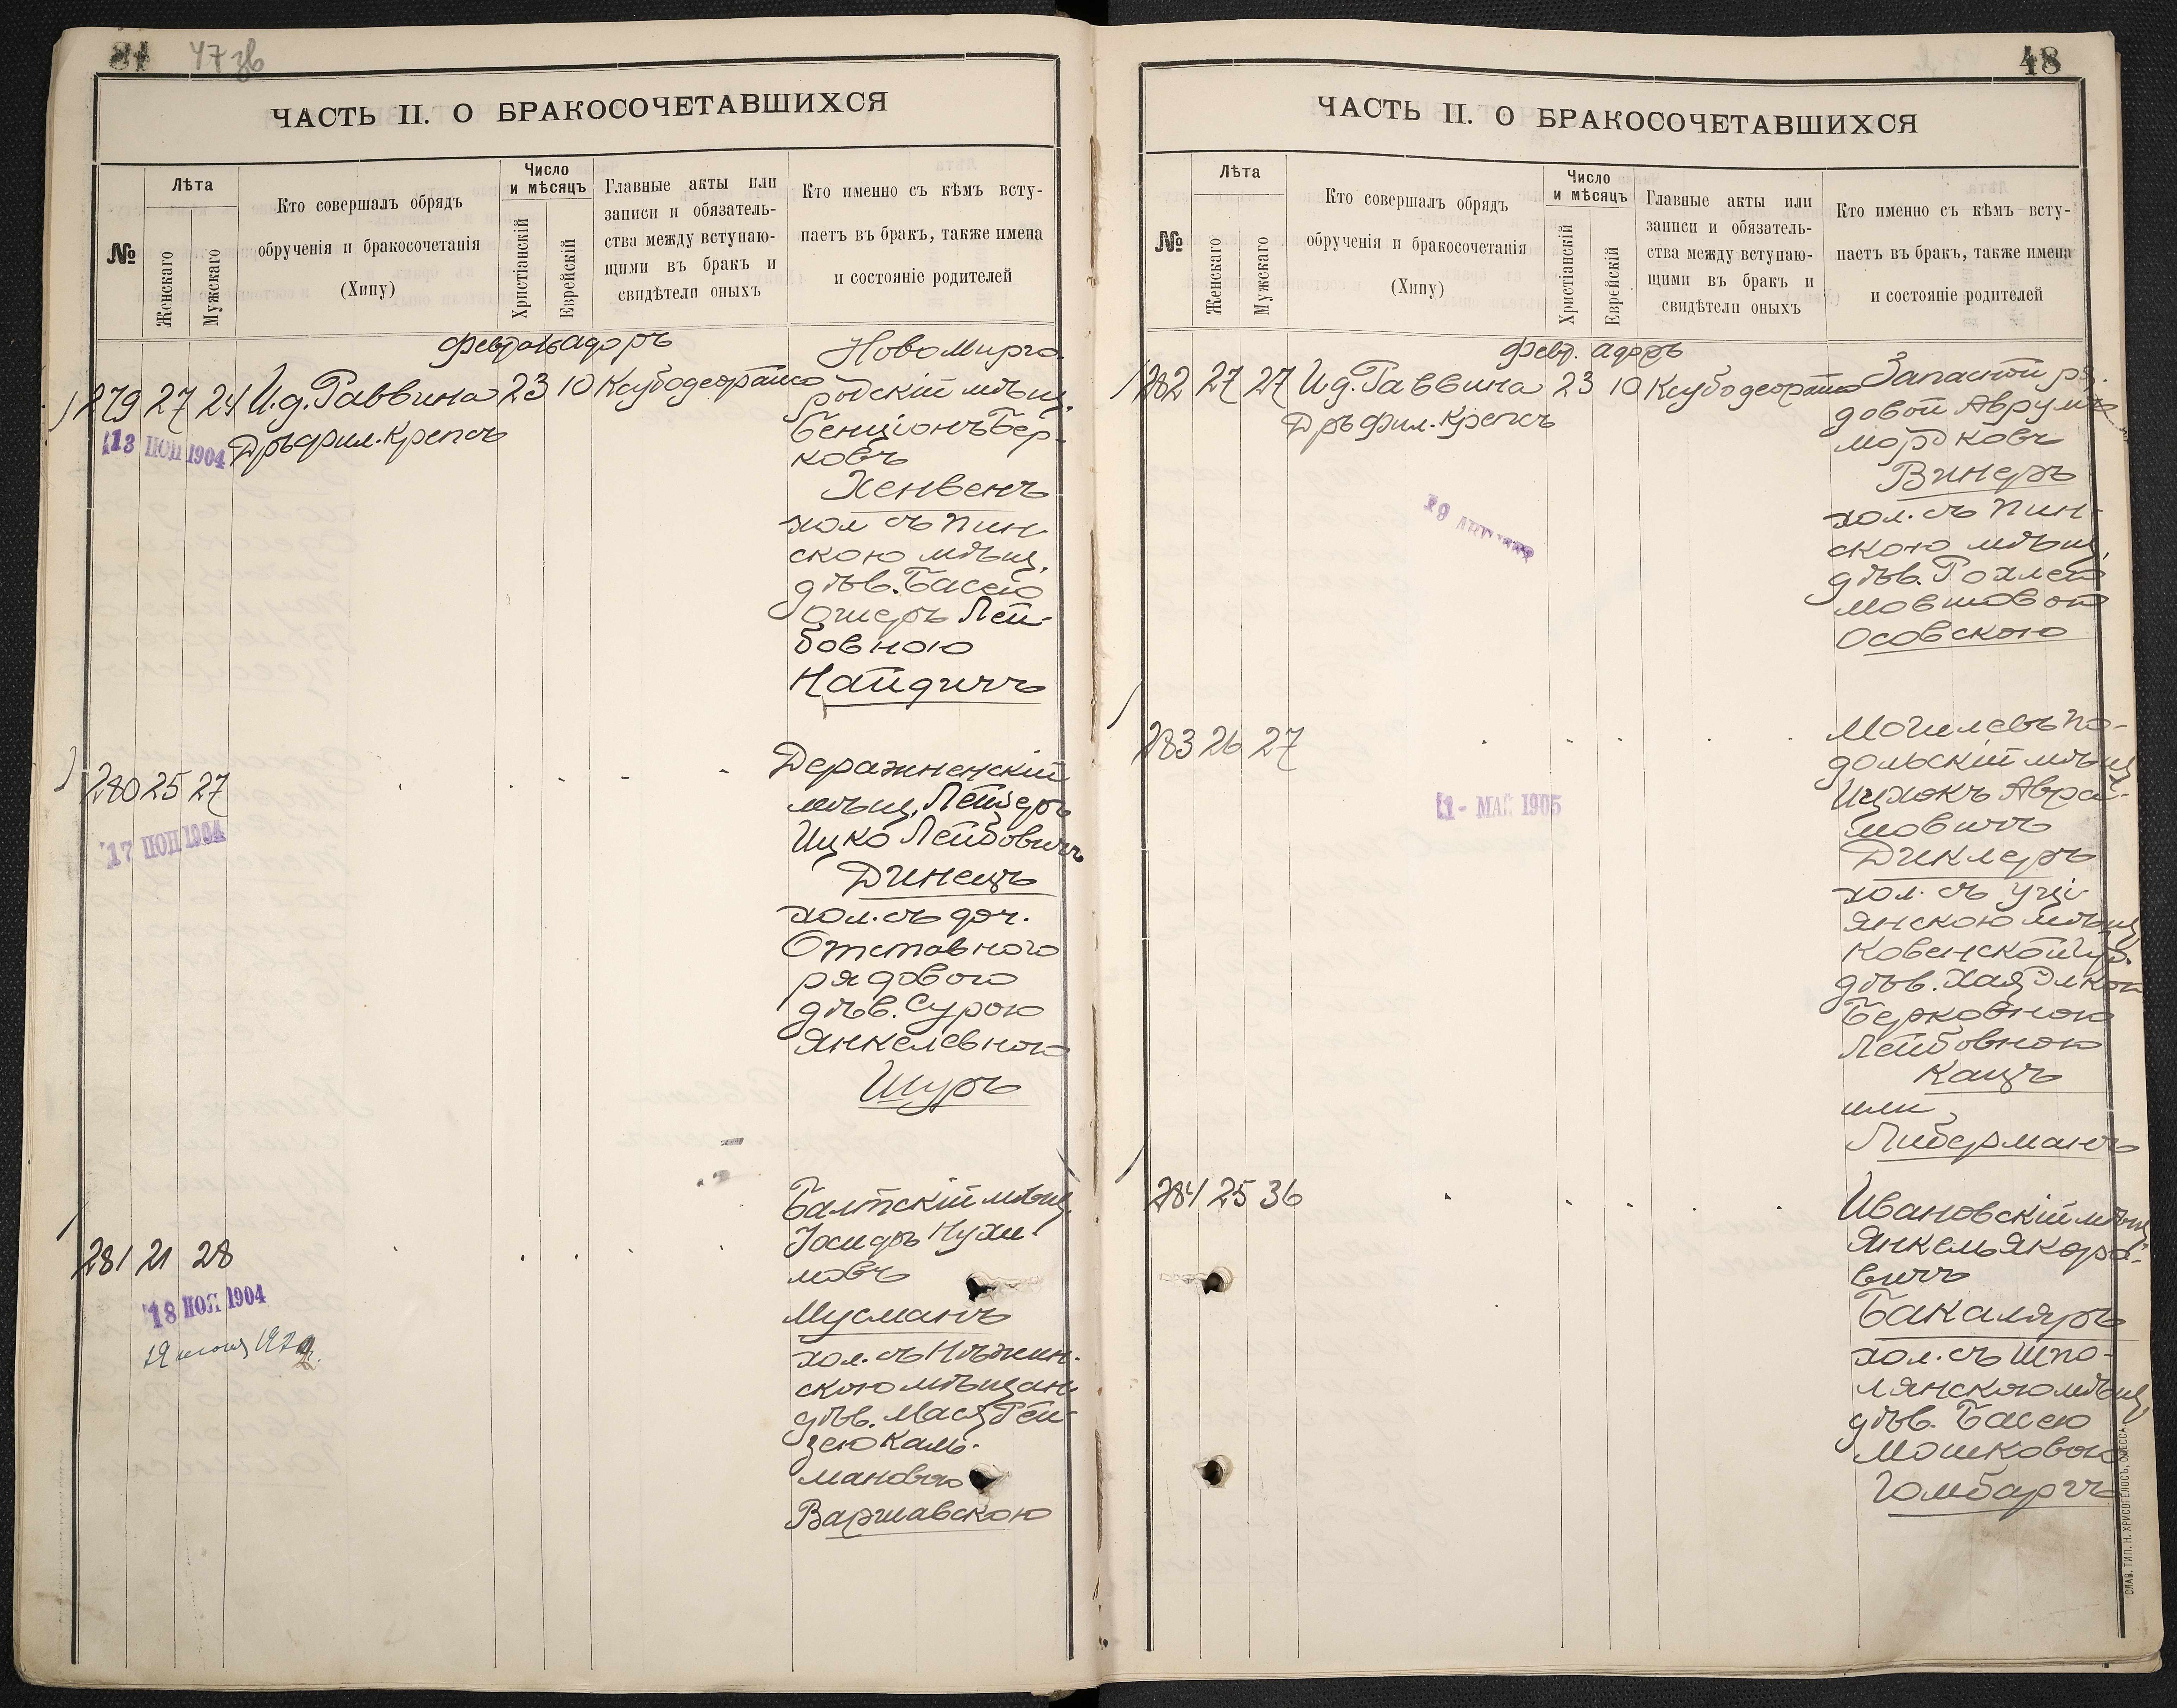 81 47 зв
ЧАСТЬ II. О БРАКОСОЧЕТАВШИХСЯ
№
Лѣта
Женскаго
Мужскаго
Кто совершалъ обрядъ
обрученія и бракосочетанія
(Хипу)
Число
и мѣсяцъ
Христіанскій
Еврейскій
Главные акты или
записи и обязатель-
ства между вступаю-
щими въ бракъ и
свидѣтели оныхъ
Кто именно съ кѣмъ всту-
паетъ въ бракъ, также имена
и состояніе родителей
Февраль адаръ
279 27 24 И.д. Раввина 23 10 Ксубодеорайсо
Дръ фил. Крепсъ
13 НОЯ 1904
Новомирго-
родскій мѣщ.
Бенціонъ Бер-
ковъ
Хенвенъ
хол. съ Пин-
скою мѣщ.
дѣв. Басею
Ошеръ Лей-
бовною
Найдичъ
280 25 27
17 НОЯ 1904
Деражненскій
мѣщ. Лейзеръ
Ицко Лейбовичъ
Динецъ
хол. съ доч.
Отставного
рядового
дѣв. Сурою
Янкелевною
Шуръ
281 21 28
18 НОЯ 1904
Балтскій мѣщ.
Іосифъ Нухи-
мовъ
Мусманъ
хол. съ Нѣжин-
скою мѣщан.
дѣв. Мася Рей-
зею Каль-
мановою
Варшавскою
48
ЧАСТЬ II. О БРАКОСОЧЕТАВШИХСЯ
№
Лѣта
Женскаго
Мужскаго
Кто совершалъ обрядъ
обрученія и бракосочетанія
(Хипу)
Число
и мѣсяцъ
Христіанскій
Еврейскій
Главные акты или
записи и обязатель-
ства между вступаю-
щими въ бракъ и
свидѣтели оныхъ
Кто именно съ кѣмъ всту-
паетъ въ бракъ, также имена
и состояніе родителей
Февр. адаръ
282 27 27 И.д. Раввина 23 10 Ксубодеорайсо
Дръ фил. Крепсъ
Запасной ря-
довой Аврумъ
Мордковъ
Винеръ
хол. съ Пин-
скою мѣщ.
дѣв. Рохлею
Мовшовой
Осовскою
283 26 27
1 - МАЙ 1905
Могилевъ По-
дольскій мѣщ.
Ицхокъ Авра-
мовичъ
Диклеръ
хол. съ Уці-
янскою мѣщ.
Ковенской губ.
дѣв. Хая Элкою
Берковною
Лейбовною
Кацъ
или
Либерманъ
284 25 36
Ивановскій мѣщ.
Янкель Якоро-
вичъ
Бакаляръ
хол. съ Шпо-
лянскою мѣщ.
дѣв. Басею
Мошковою
Гомбаргъ
СЛАВ. ТИП. Н. ХРИСОГЕЛОСЪ, ОДЕССА.